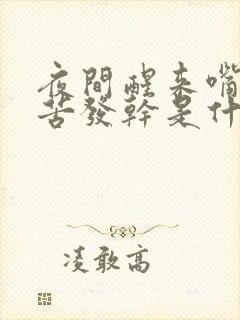 夜間醒來嘴
苦發幹是什
凌敢高